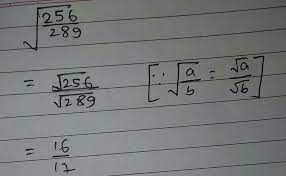 √(256/289)
= √256/√289 [∵ √(a/b) = √a/√b]
= 16/17